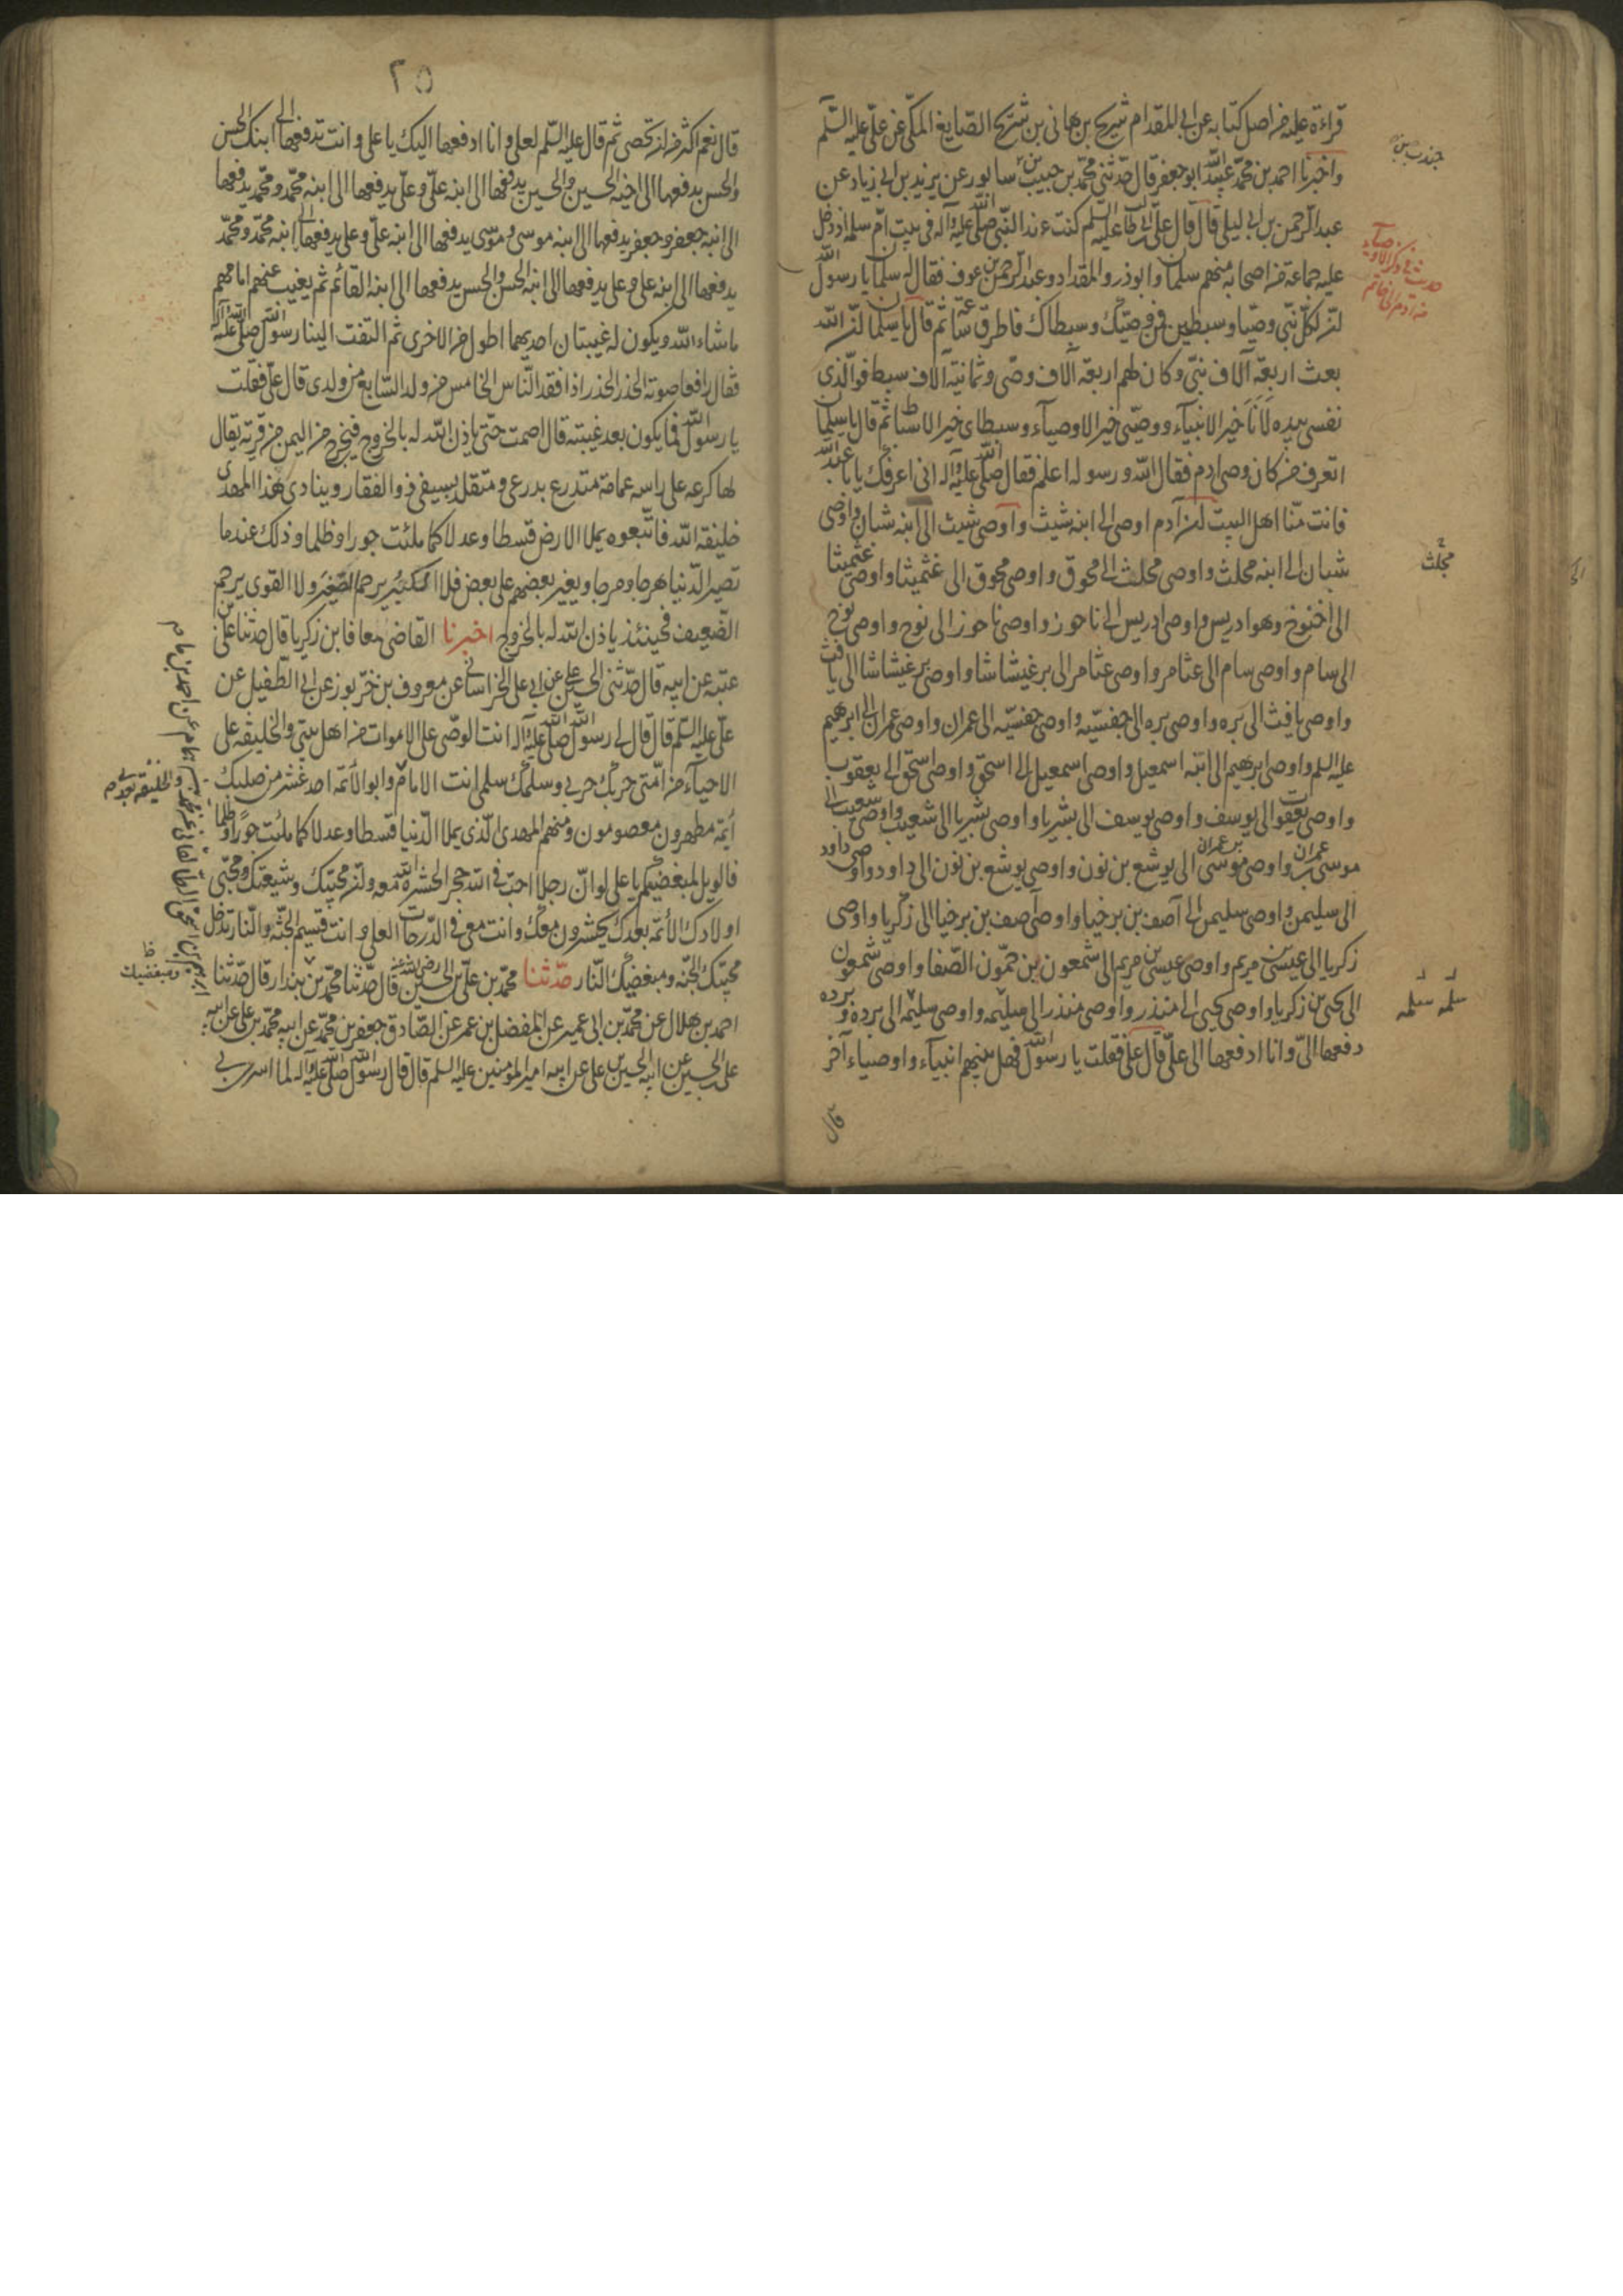 قراءة عليه من اصل كتابه عن ابي المقدام شريح بن هاني بن شريح الصايغ المكي عن علي عليه السلم
واخبرنا احمد بن محمد عبيد الله ابو جعفر قال حدثني محمد بن حبيب سابور عن يزيد بن ابي زياد عن
عبد الرحمن بن ابي ليلى قال قال علي بن ابي طالب عليه السلم كنت عند النبي صلى الله عليه وآله في بيت ام سلمه اذ دخل
عليه جماعة من اصحابه منهم سلمان وابوذر والمقداد وعبد الرحمن بن عوف فقال له سلمان يا رسول الله
ان لكل نبي وصيا وسبطين فمن وصيك وسبطاك فاطرق ساعة ثم قال يا سلمان ان الله
بعث اربعة آلاف نبي وكان لهم اربعة آلاف وصي وثمانية آلاف سبط فوالذي
نفسي بيده لانا خير الانبياء ووصيي خير الاوصياء وسبطاي خير الاسباط ثم قال يا سلمان
اتعرف من كان وصي ادم فقال الله ورسوله اعلم فقال صلى الله عليه وآله اني اعرفك يابا عبد الله
فانت منا اهل البيت ان آدم اوصى الى ابنه شيث واوصى شيث الى ابنه شبان واوصى
شبان الى ابنه محلث واوصى محلث الى محوق واوصى محوق الى غثميثا واوصى غثميثا
الى اخنوخ وهو ادريس واوصى ادريس الى ناحوز واوصى ناحوز الى نوح واوصى نوح
الى سام واوصى سام الى عثامر واوصى عثامر الى برغيشاشا واوصى برغيشاشا الى يافث
واوصى يافث الى بره واوصى بره الى جفسيه واوصى جفسيه الى عمران واوصى عمران الى ابرهيم
عليه السلم واوصى ابرهيم الى ابنه اسمعيل واوصى اسمعيل الى اسحق واوصى اسحق الى يعقوب
واوصى يعقوب الى يوسف واوصى يوسف الى بشريا واوصى بشريا الى شعيب واوصى شعيب الى
موسى بن عمران واوصى موسى بن عمران الى يوشع بن نون واوصى يوشع بن نون الى داود واوصى داود
الى سليمن واوصى سليمن الى آصف بن برخيا واوصى آصف بن برخيا الى زكريا واوصى
زكريا الى عيسى بن مريم واوصى عيسى بن مريم الى شمعون بن حمون الصفا واوصى شمعون
الى يحيى بن زكريا واوصى يحيى الى منذر واوصى منذر الى سليمه واوصى سليمه الى برده وبرده
دفعها الي وانا ادفعها الى علي قال علي فقلت يا رسول الله فهل بينهم انبياء واوصياء آخر
قال
محلث
سلمه سلمه
٢٥
قال نعم اكثر من ان تحصى ثم قال عليه السلم لعلي وانا ادفعها اليك يا علي وانت تدفعها الى ابنك الحسن
والحسن يدفعها الى اخيه الحسين والحسين يدفعها الى ابنه علي وعلي يدفعها الى ابنه محمد ومحمد يدفعها
الى ابنه جعفر وجعفر يدفعها الى ابنه موسى وموسى يدفعها الى ابنه علي وعلي يدفعها الى ابنه محمد ومحمد
يدفعها الى ابنه علي وعلي يدفعها الى ابنه الحسن والحسن يدفعها الى ابنه القائم ثم يغيب عنهم امامهم
ماشاء الله ويكون له غيبتان احديهما اطول من الاخرى ثم التفت الينا رسول الله صلى الله عليه وآله
فقال رافعا صوته الحذر الحذر اذا فقد الناس الخامس من ولد السابع من ولدى قال علي فقلت
يا رسول الله فما يكون بعد غيبته قال اصمت حتى ياذن الله له بالخروج فيخرج من اليمن من قرية يقال
لها كرعه على راسه عمامة متدرع بدرعي ومتقلد بسيفي ذو الفقار وينادى هذا المهدى
خليفة الله فاتبعوه يملا الارض قسطا وعدلا كما ملئت جورا وظلما وذلك عندما
تصير الدنيا هرجا ومرجا ويغير بعضهم على بعض فلا الكبير يرحم الصغير ولا القوى يرحم
الضعيف فحينئذ ياذن الله له بالخروج اخبرنا القاضي معافا بن زكريا قال حدثنا علي بن
عتبه عن ابيه قال حدثني الحسين بن علي عن ابي علي الخراساني عن معروف بن خربوز عن ابي الطفيل عن
علي عليه السلم قال قال لي رسول الله صلى الله عليه وآله انت الوصي على الاموات من اهل بيتي والخليفة على
الاحياء من امتي حربك حربي وسلمك سلمي انت الامام وابو الائمه احد عشر من صلبك
أئمة مطهرون معصومون ومنهم المهدى الذى يملا الدنيا قسطا وعدلا كما ملئت جورا وظلما
فالويل لمبغضيكم يا علي لو ان رجلا احب في الله حجرا لحشره الله معه وان محبيك وشيعتك ومحبي
اولادك الأئمة بعدك يحشرون معك وانت معي في الدرجات العلى وانت قسيم الجنة والنار تدخل
محبيك الجنة ومبغضيك النار حدثنا محمد بن علي بن الحسين رضي الله عنه قال حدثنا محمد بن بندار قال حدثنا
احمد بن هلال عن محمد بن ابي عمير عن المفضل بن عمر عن الصادق جعفر بن محمد عن ابيه محمد بن علي عن ابيه
علي بن الحسين عن ابيه الحسين بن علي عن ابيه امير المؤمنين عليه السلم قال قال رسول الله صلى الله عليه وآله لما اسرى بي